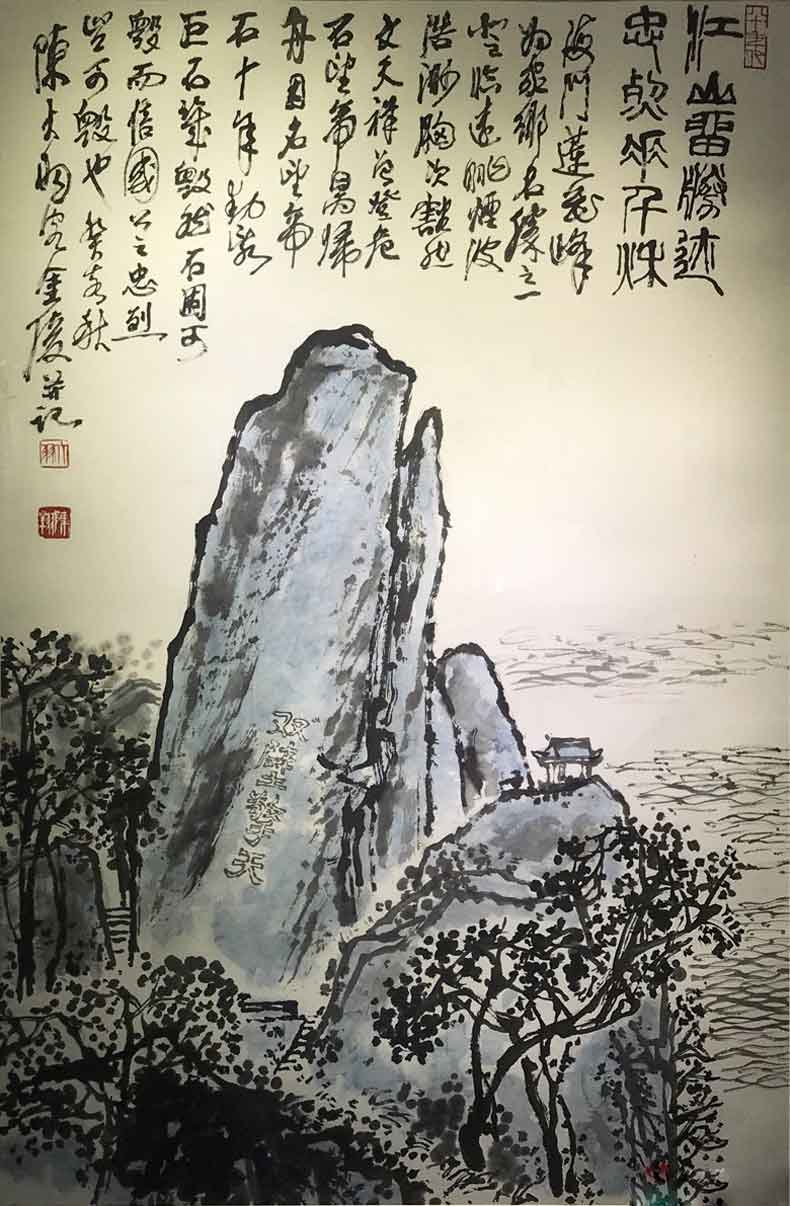 江山留勝迹
忠烈垂千秋
海門蓮花峰
为家鄉名勝之一
登臨遠眺煙波
浩渺胸次豁然
文天祥曾登危
石望帝昺歸
舟因名望帝
石十年動亂
巨石幾毀然石固可
毀而信國公之忠烈
豈可毀也癸亥秋
陳大羽客金陵并記
大羽